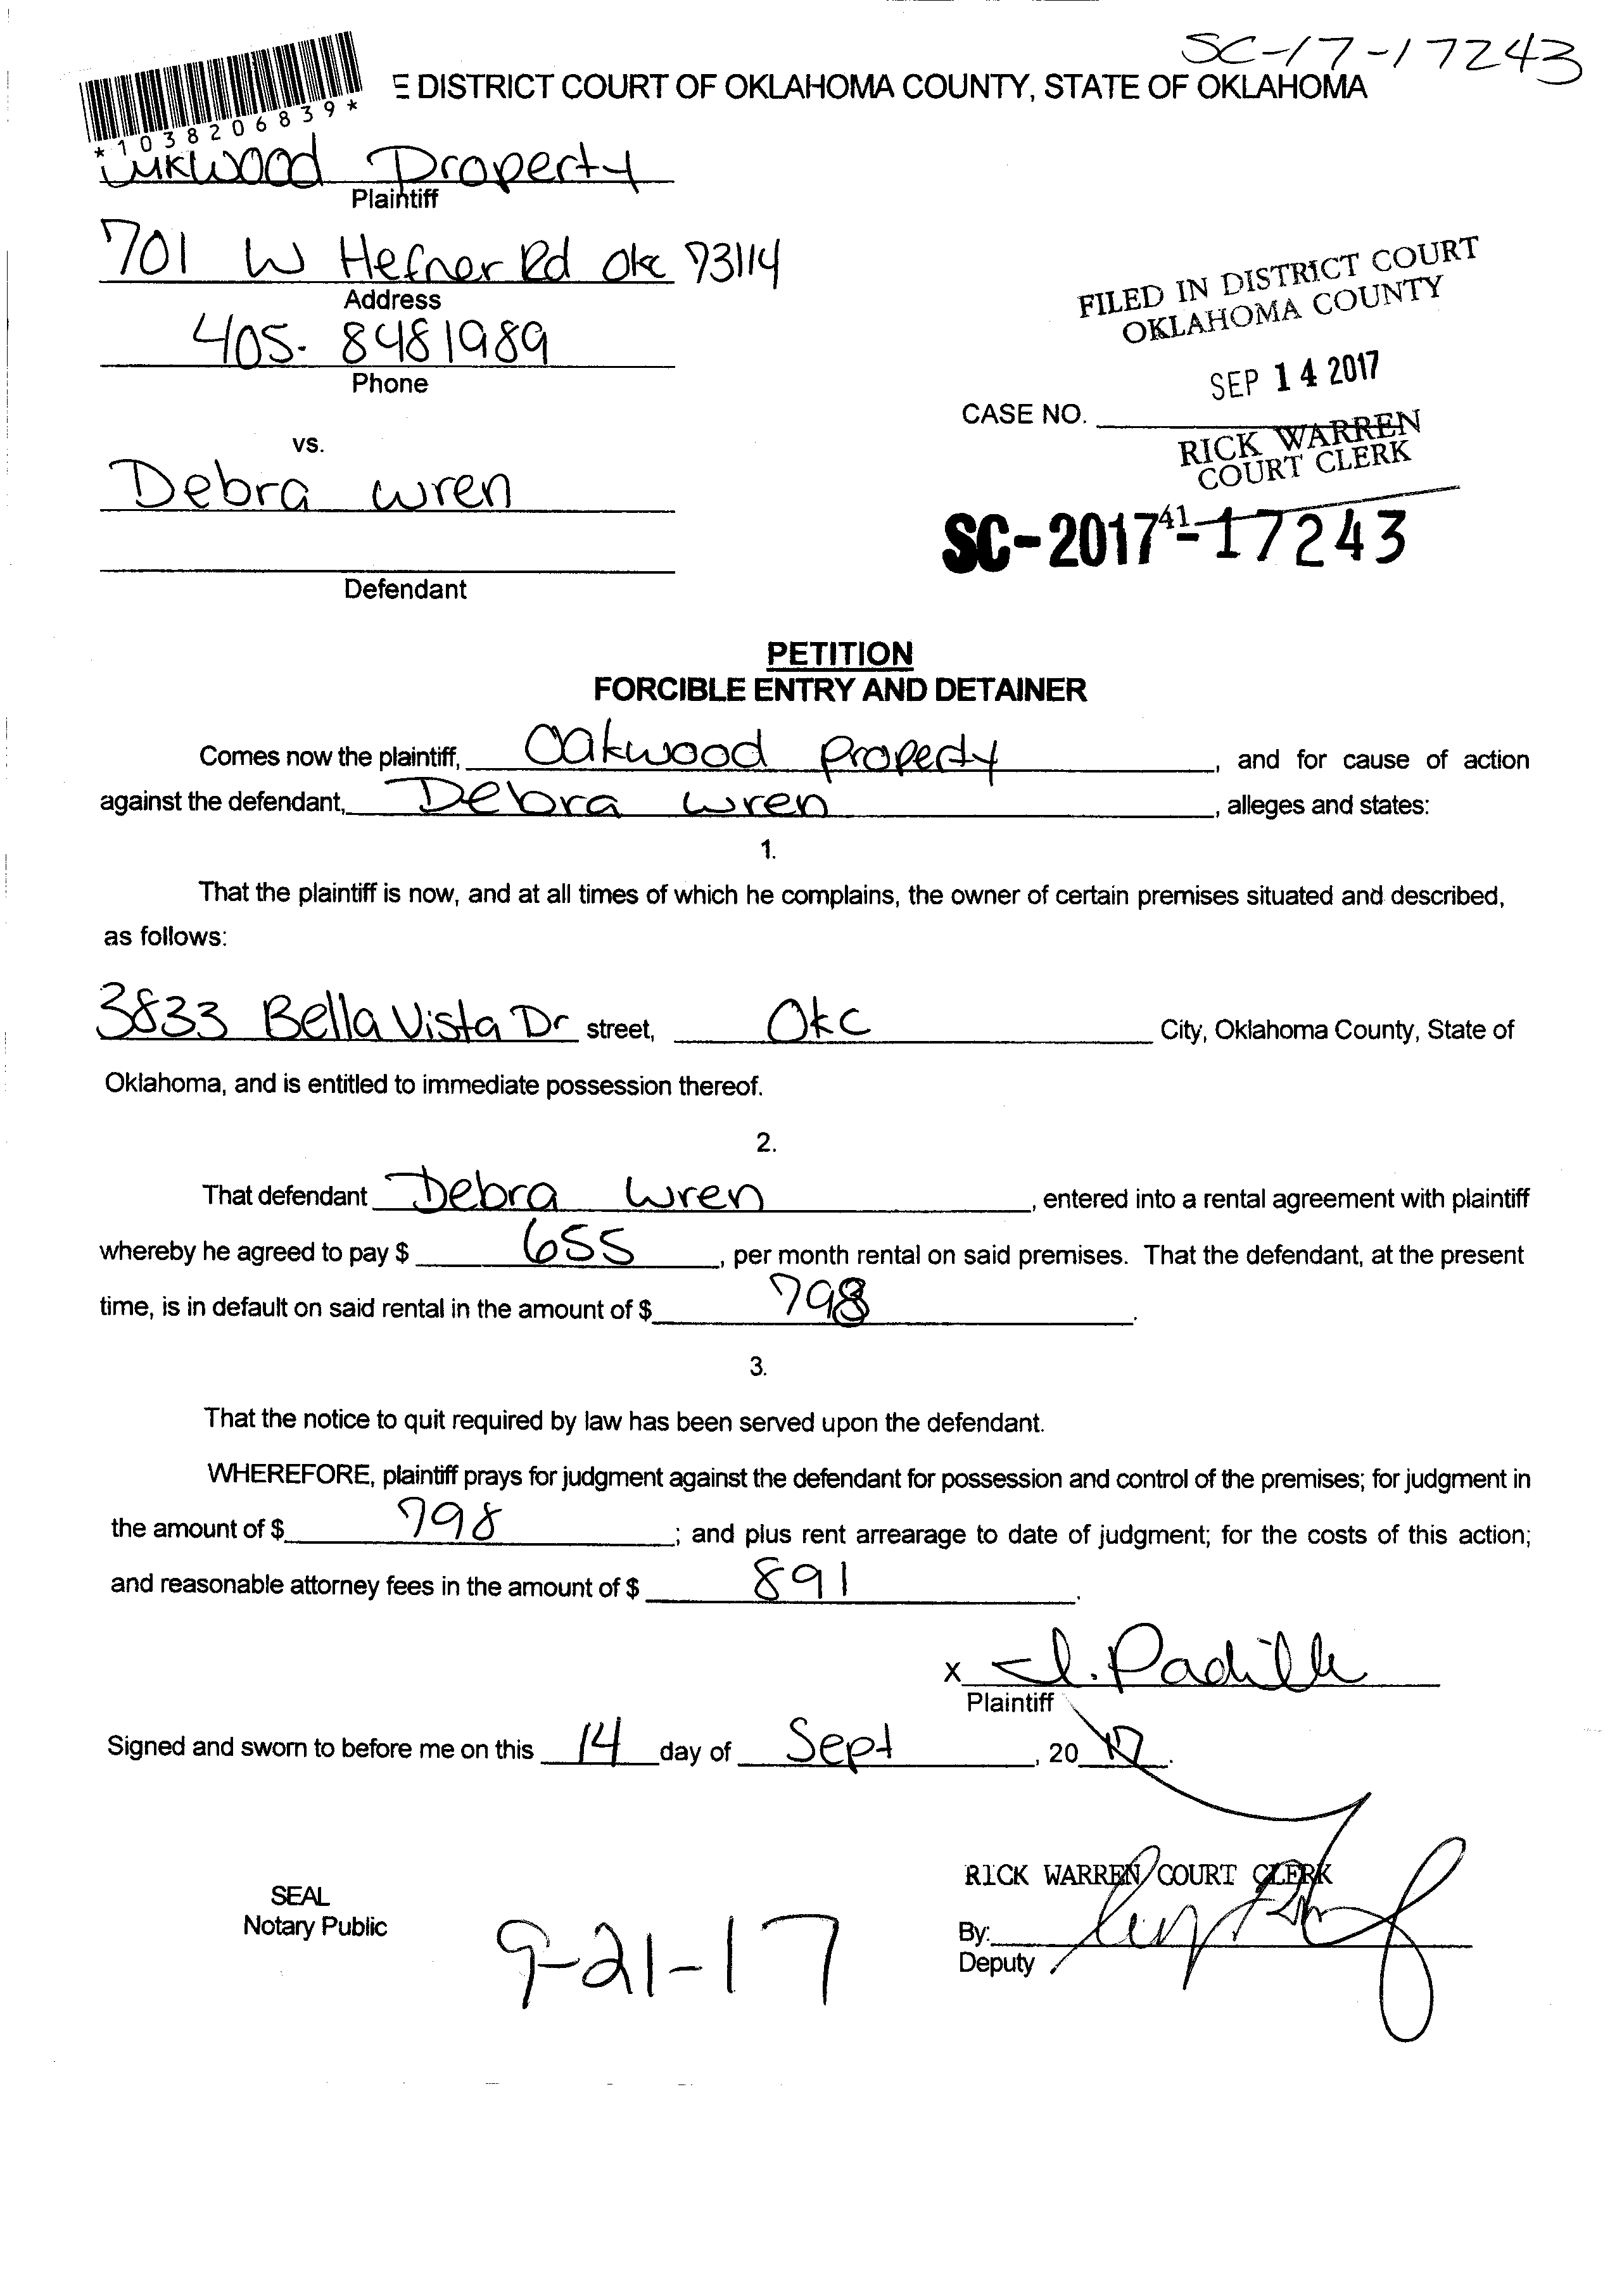 SC-17-17243
E DISTRICT COURT OF OKLAHOMA COUNTY, STATE OF OKLAHOMA
*1038206839*
Property
Plaintiff
701 W Hefner Rd Okc 73114
Address
405. 8481989
Phone
FILED IN DISTRICT COURT
OKLAHOMA COUNTY
SEP 14 2017
CASE NO.
RICK WARREN
COURT CLERK
vs.
Debra wren
41
SC-2017-17243
Defendant
PETITION
FORCIBLE ENTRY AND DETAINER
Comes now the plaintiff, Oakwood Property, and for cause of action
against the defendant, Debra wren, alleges and states:
1.
That the plaintiff is now, and at all times of which he complains, the owner of certain premises situated and described,
as follows:
3833 Bella Vista Dr street, Okc City, Oklahoma County, State of
Oklahoma, and is entitled to immediate possession thereof.
2.
That defendant Debra Wren, entered into a rental agreement with plaintiff
whereby he agreed to pay $ 655, per month rental on said premises. That the defendant, at the present
time, is in default on said rental in the amount of $ 798.
3.
That the notice to quit required by law has been served upon the defendant.
WHEREFORE, plaintiff prays for judgment against the defendant for possession and control of the premises; for judgment in
the amount of $ 798; and plus rent arrearage to date of judgment; for the costs of this action;
and reasonable attorney fees in the amount of $ 891.
x J. Padilla
Plaintiff
Signed and sworn to before me on this 14 day of Sept, 20 17.
RICK WARREN COURT CLERK
SEAL
Notary Public
9-21-17
By:
Deputy